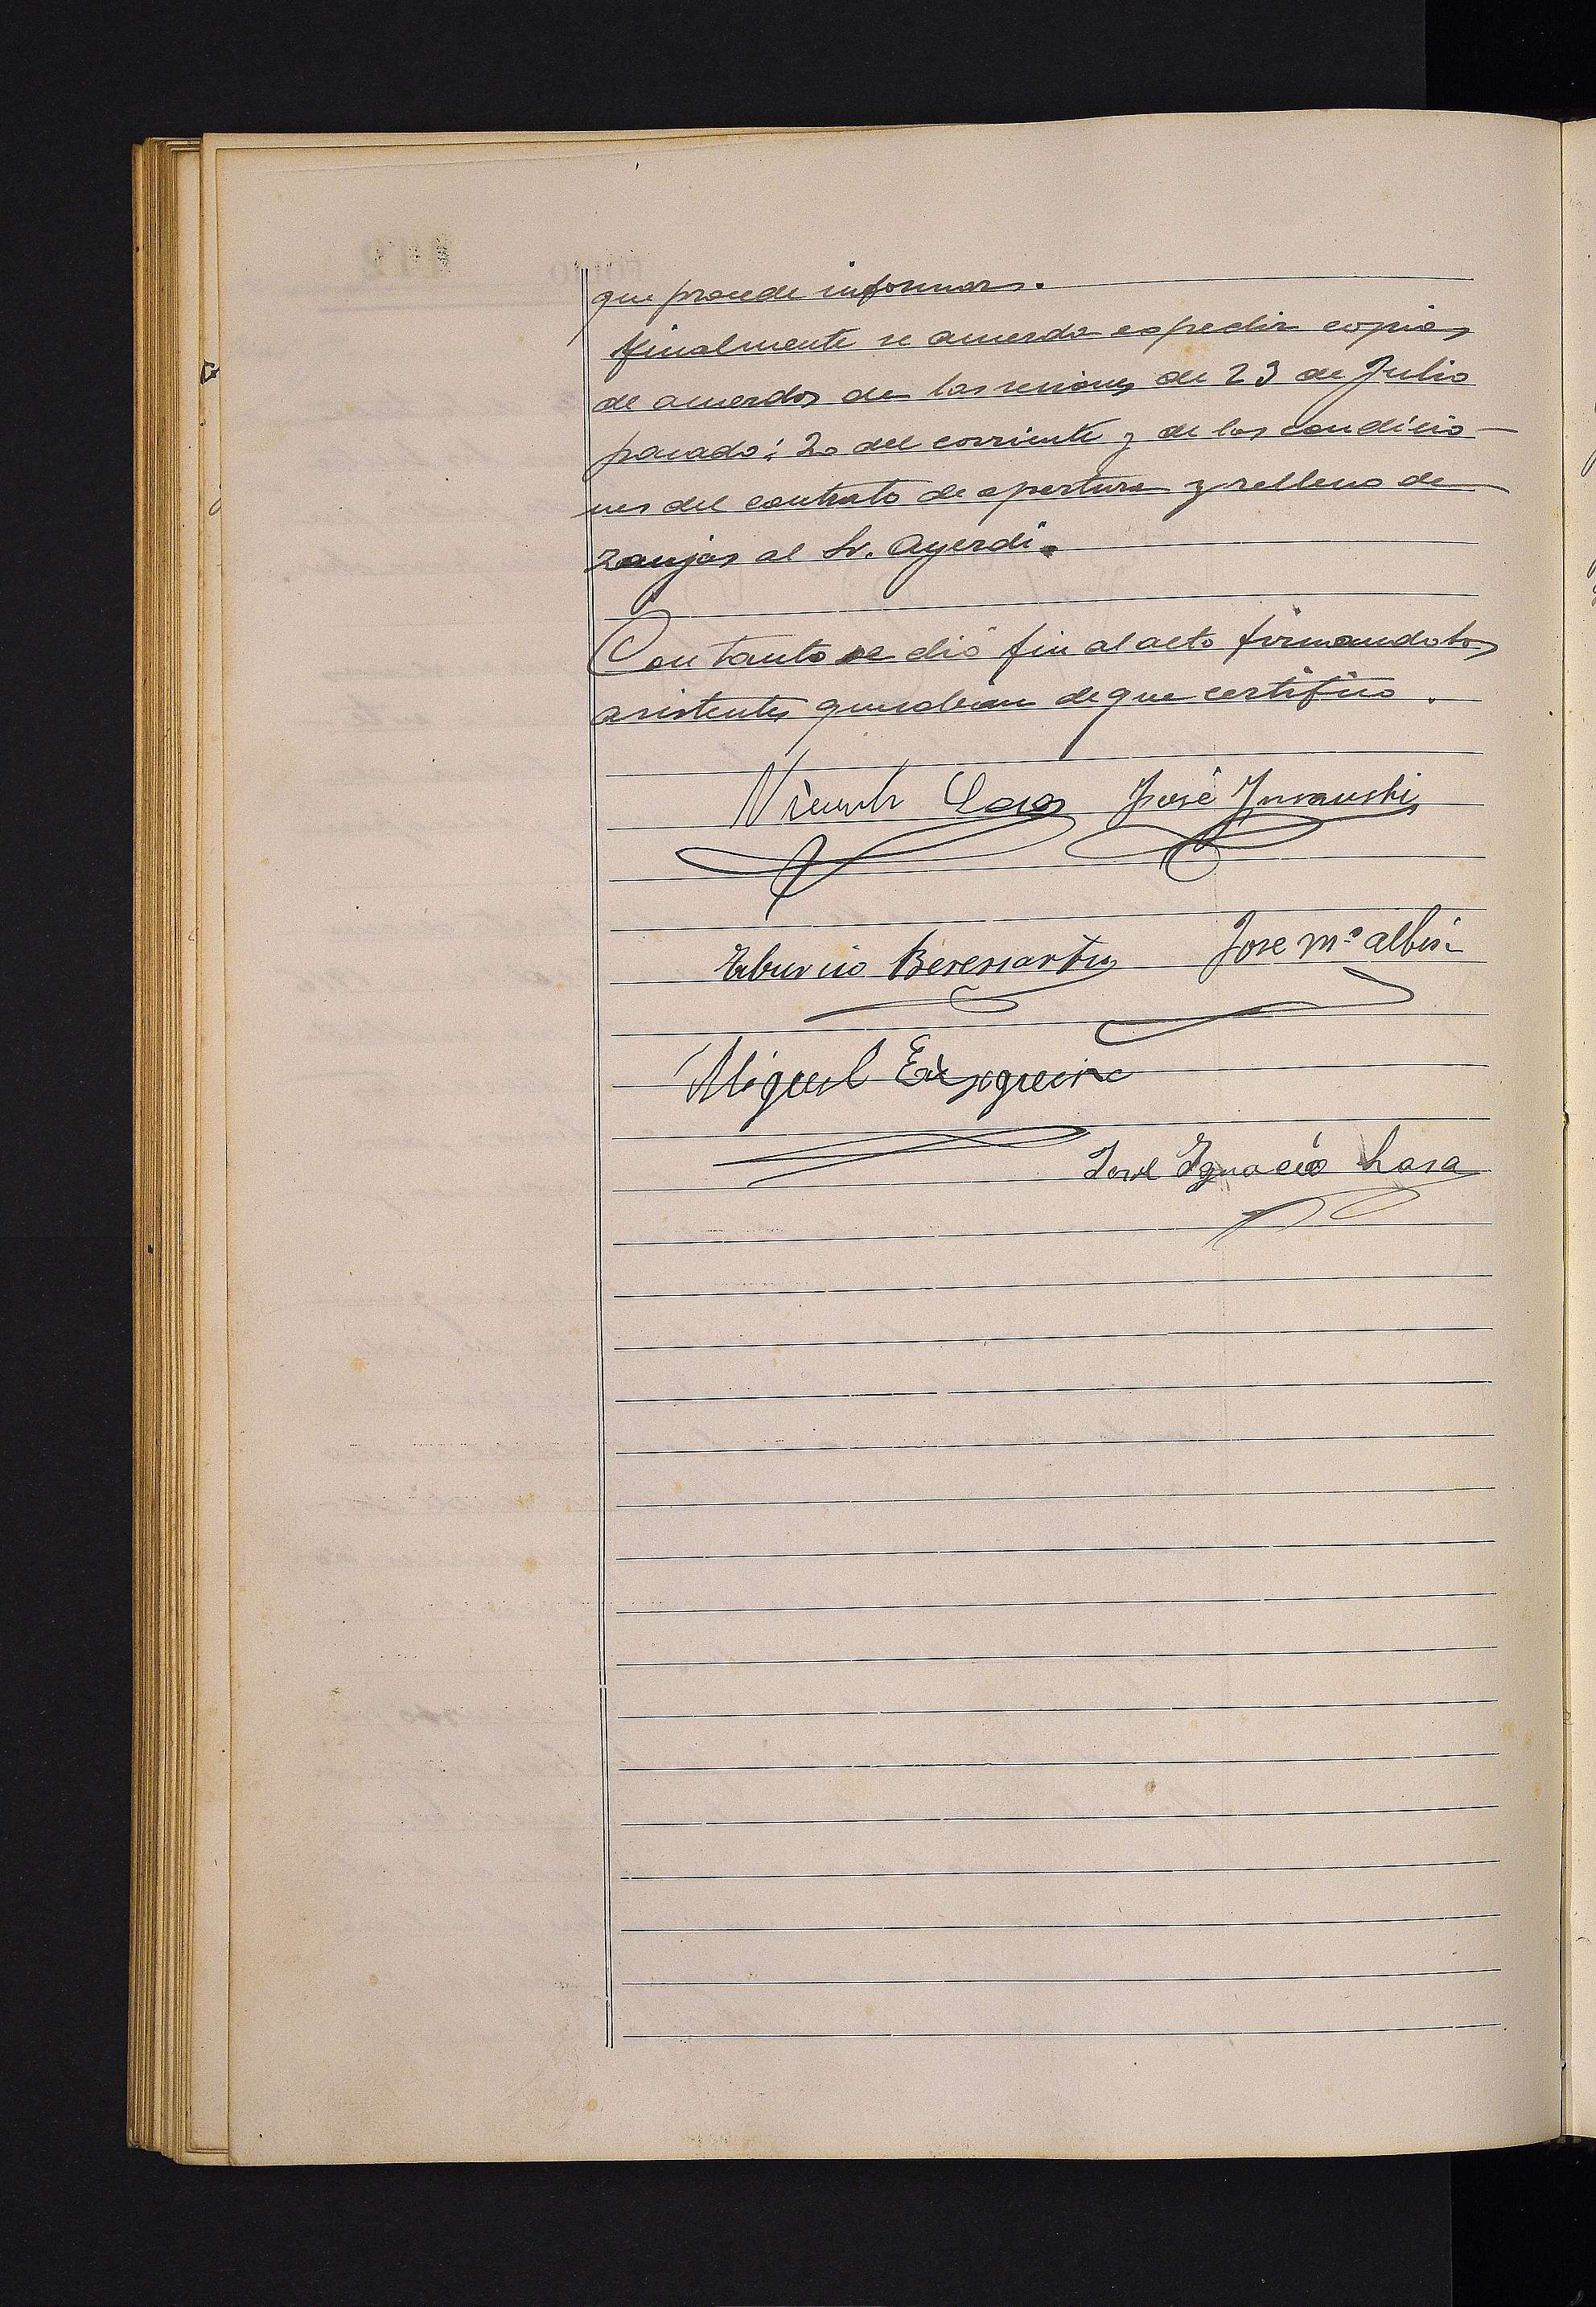 que procede informar.
Finalmente se acuerda expedir copias
de acuerdos de las sesiones de 23 de Julio
pasado; 20 del corriente y de las condicio-
nes del contrato de apertura y relleno de
zanjas al Sr. Ayerdi.
Con tanto se dió fin al acto firmando los
asistentes que saben de que certifico.
Vicente Lasa José
Tiburcio Beresiartu Jose Mª Albisu
Miguel Eizaguirre
José Ignacio Lasa